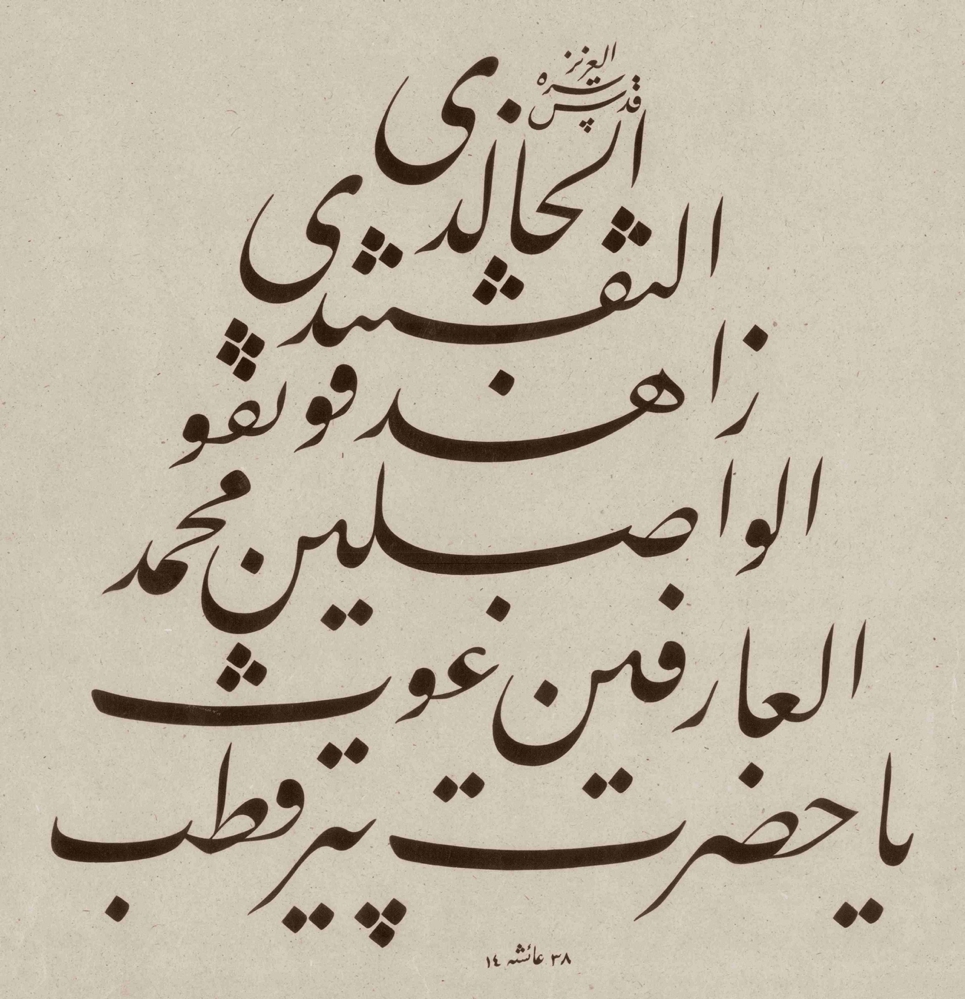 يا حضرت پير قطب
العارفين غوث
الواصلين محمد
زاهد قوتقو
النقشبندي
الخالدي
قدس سره العزيز
٣٨ عائشه ١٤